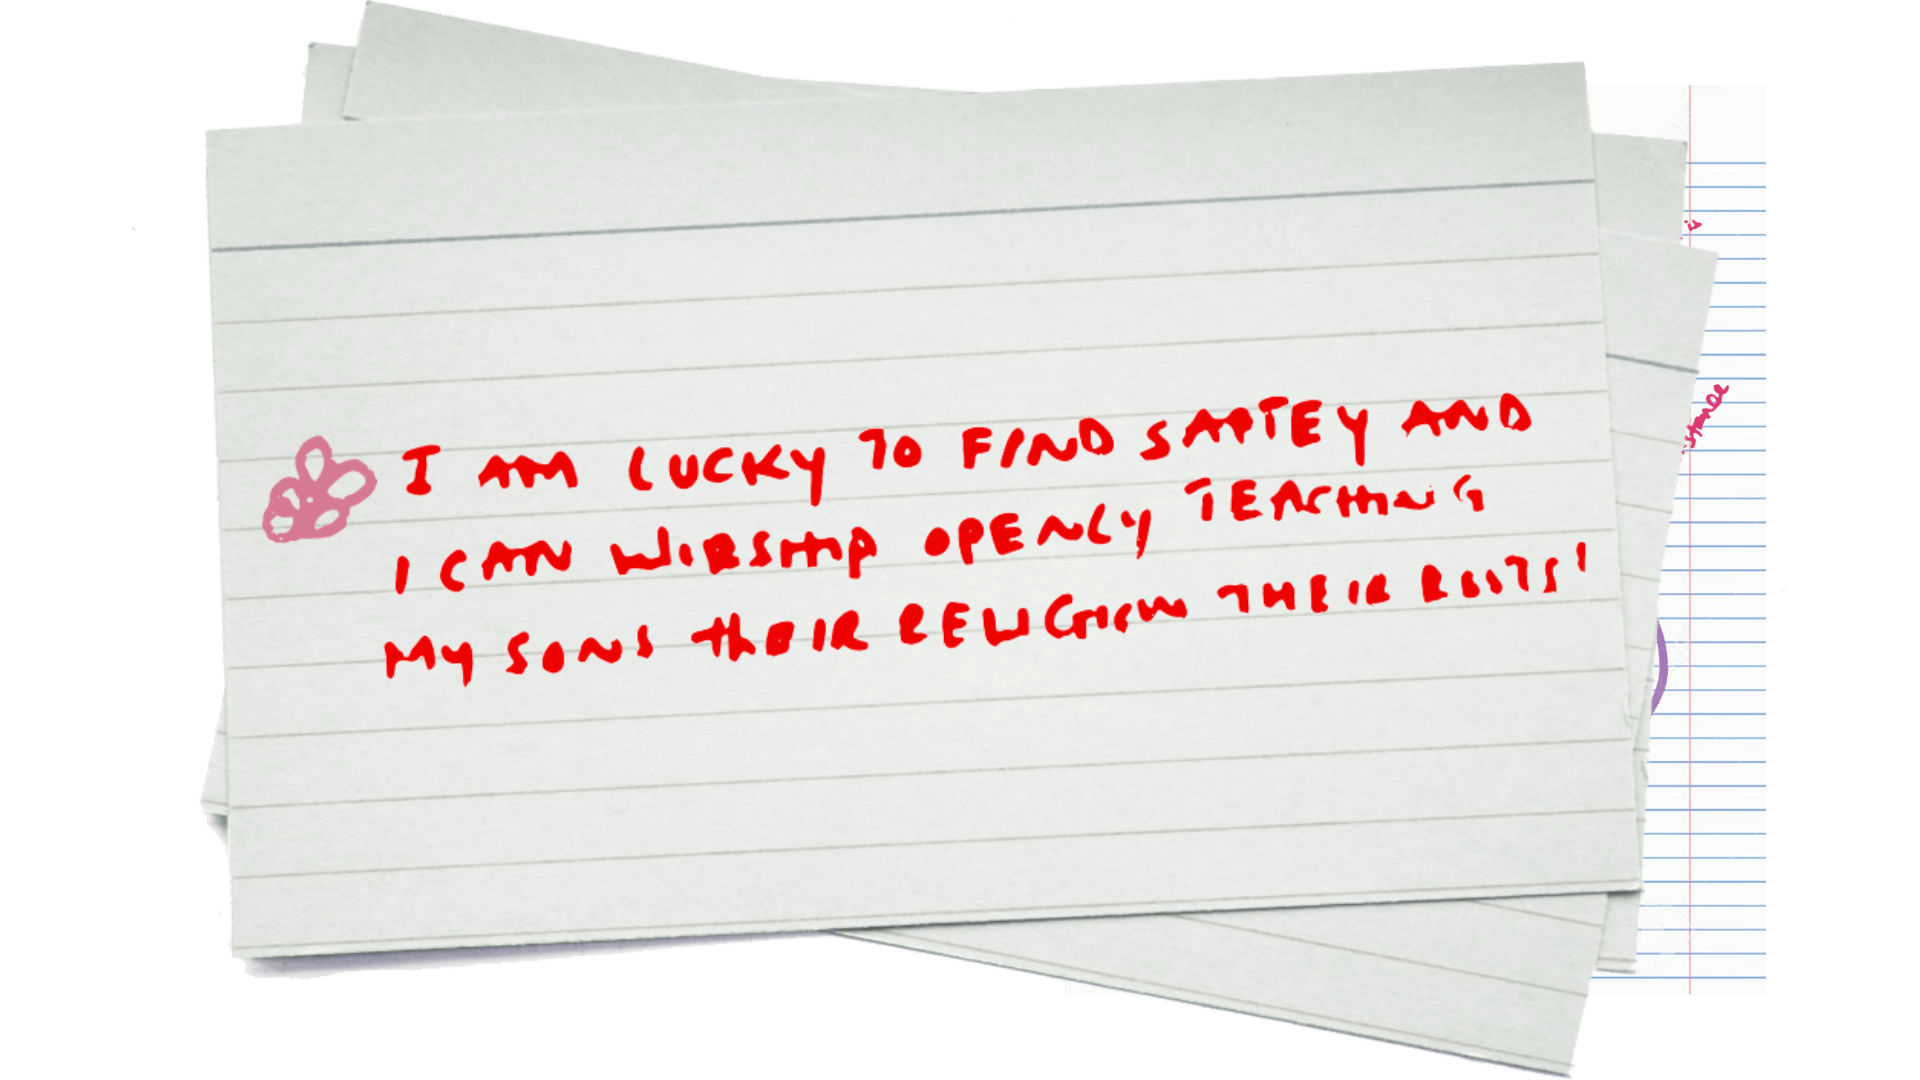 I AM LUCKY TO FIND SAPTEY AND
I CAN WORSHIP OPENLY TEACHING
MY SONS THEIR RELIGION THEIR ROOTS'
is